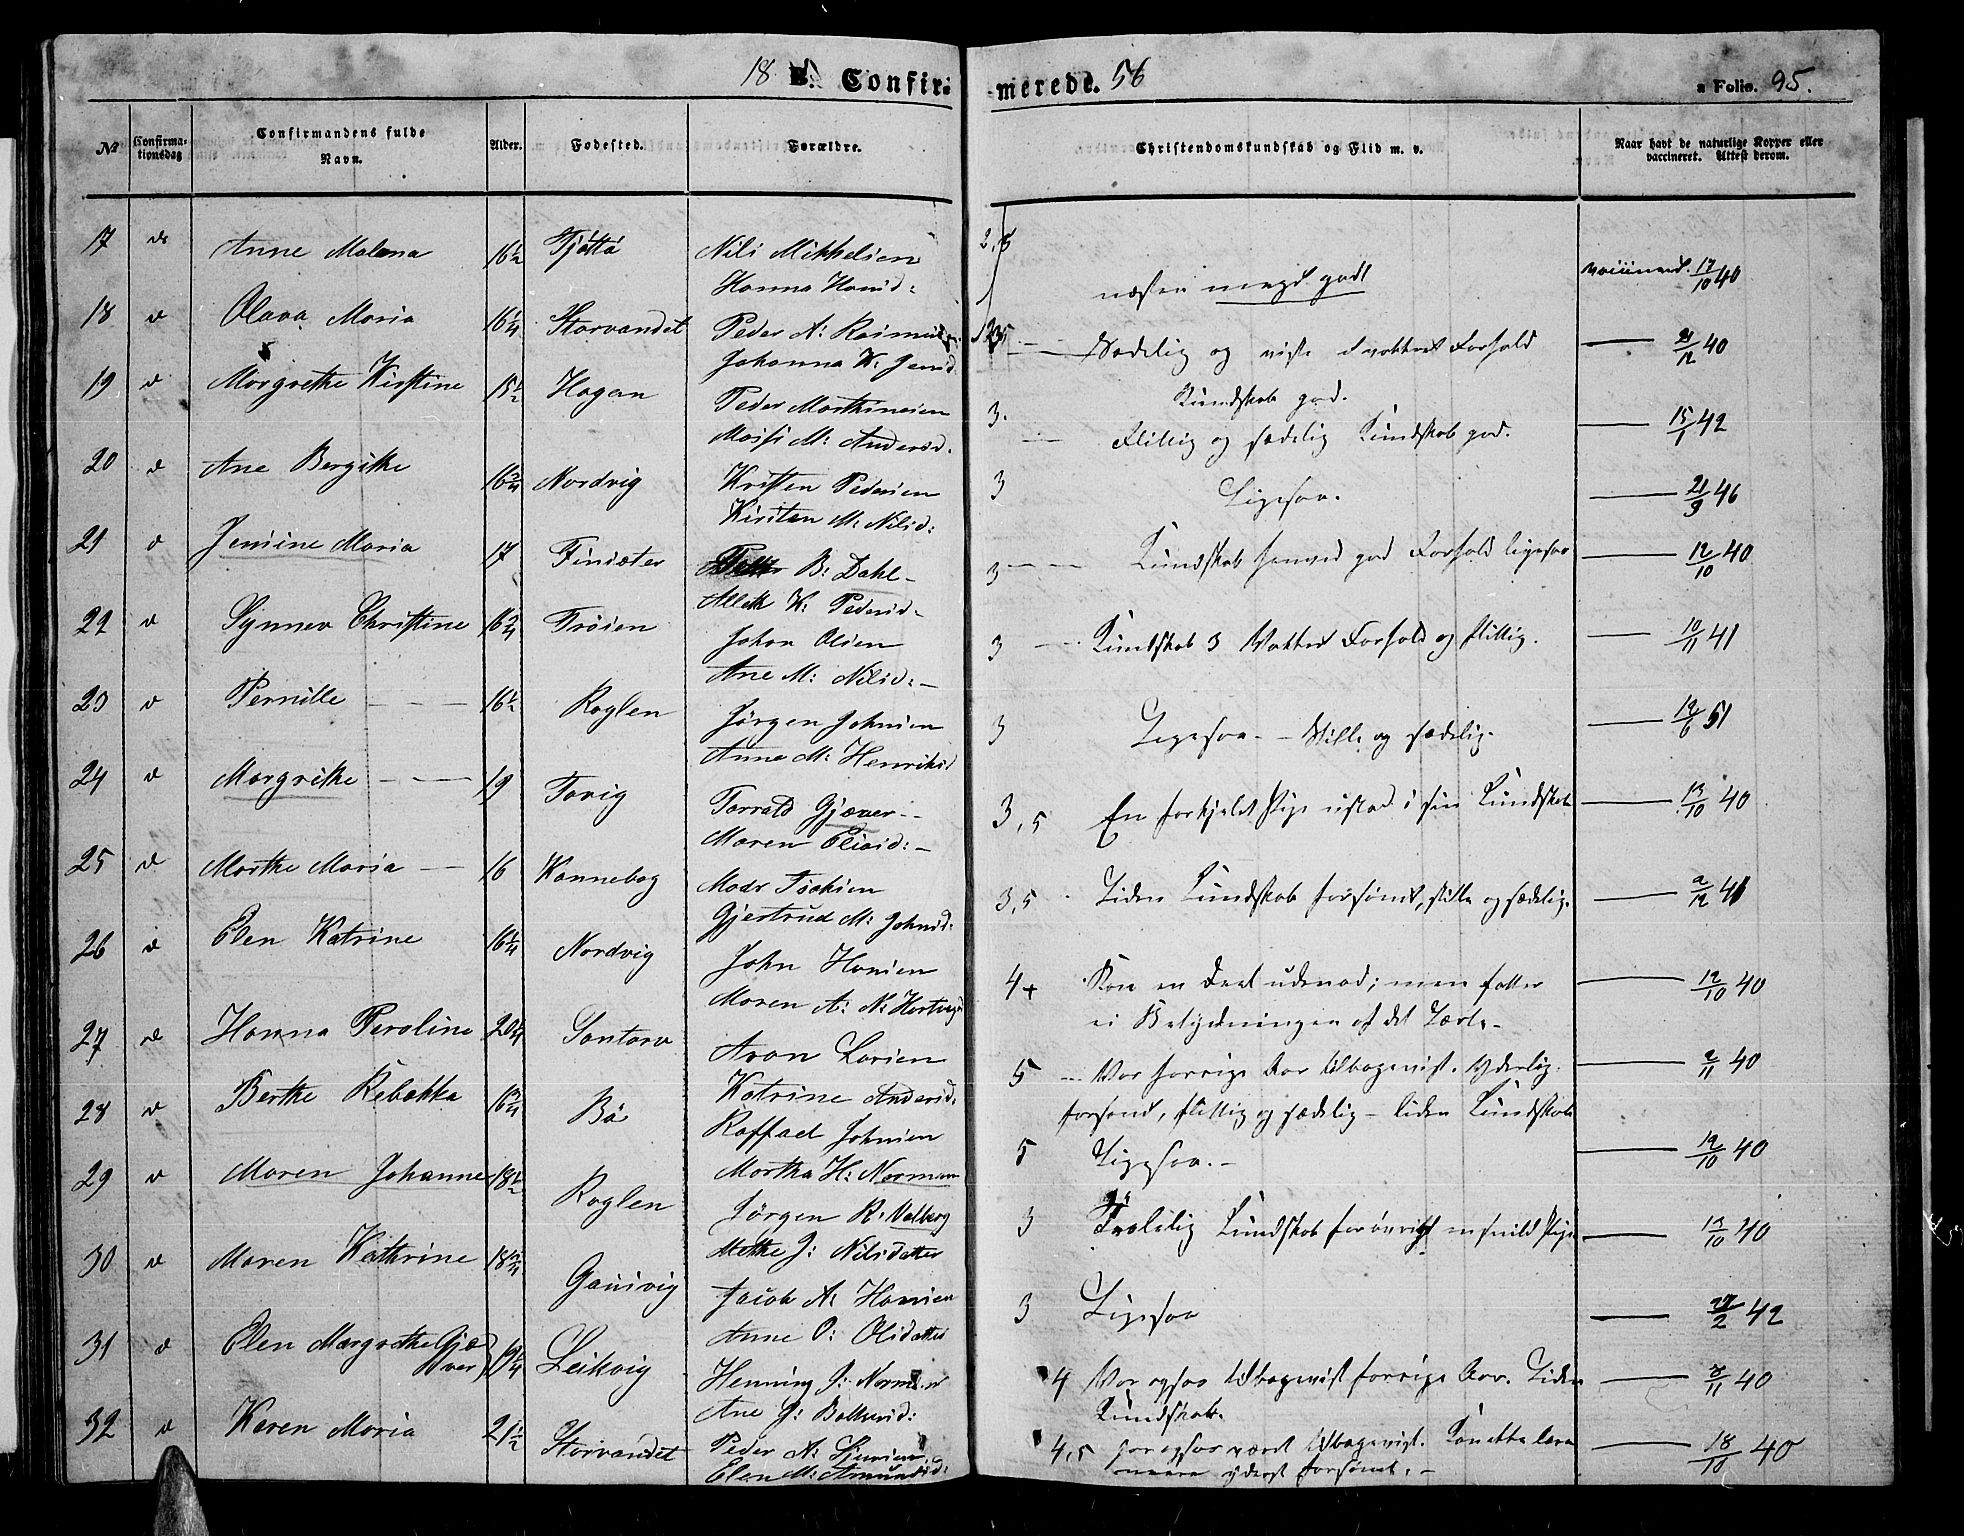 18 B. Confirmerede. 56
a Folio. 95.
№ Confirmationsdag Confirmandens fulde Navn. Alder. Fødested. Forældre. Christendomskundskab og Flid m. v. Naar havt de naturlige Kopper eller vaccineret. Attest derom.
17 Anne Malena 16½ Tjøttø Nils Mikkelsen 2,5
Hanna Hansd: næsten meget godt 17/10 40
18 Olava Maria 16¼ Storvandet Peder A: Rasmussen Sædelig og viste et vakkert Forhold — 21/12 40
Johanna K. Jensd. Kundskab god.
19 Margrethe Kirstine 15½ Hagan Peder Marthinsen 3. Flittig og sædelig Kundskab god. — 15/1 42
M: Andersd.
20 Ane Bergithe 16¾ Nordvig Kristen Pedersen 3 Ligesaa. — 21/9 46
Kirsten M: Nilsd:
21 Jensine Maria 17 Finsæter B: Dahl 3 Kundskab god Forhold ligesaa — 12/10 40
K: Pedersd.
22 Synnev Christine 16¾ Trøsen Johan Olsen 3 Kundskab 3 Vakkert Forhold og flittig. — 10/11 41
Ane M: Nilsd:
23 Pernille 16½ Roglen Jørgen Johnsen 3 Ligesaa. – Stille og sædelig. — 19/6 51
Anne M: Henriksd
24 Margrithe 19 Tovig Torrald Gjæver 3,5 En Pige i sin Kundskab — 13/10 40
Maren Eliasd:
25 Marthe Maria 16 Kannebog Mads Isaksen 3,5 Liden Kundskab forsømt, stille og sædelig. — 2/12 41
Gjertrud M: Johnsd:
26 Elen Katrine 16¼ Nordvig John Hansen 4+ Kan en Deel udenad; men fatter — 12/10 40
Maren A: N: Hertvigsd ei Betydningen af det Lærte.
27 Hanna Peroline 20¼ Santorv Aron Larsen 5 Var forrige Aar tilbagevist. Yderlig — 2/11 40
Katrine Andersd. forsømt, flittig og sædelig – liden Kundskab
28 Berthe Rebekka 16¾ Bø Raffael Johnsen 5 Ligesaa. – 12/10 40
Martha H: Norman
29 Maren Johanne 18½ Roglen Jørgen R: Valberg 3 Kundskab forøvrigt en snild Pige — 13/10 40
Methe J: Nilsdatter
30 Maren Kathrine 18¾ Gausvig Jacob A: Hansen 3 Ligesaa — 27/2 42
Anne O: Olsdatter
31 Elen Margrethe Gjæver 19¼ Leikvig Henning J: Norman 4 Var ogsaa tilbagevist forrige Aar. Liden — 3/11 40
Ane J: Kundskab.
32 Karen Maria 21½ Storvandet Peder A: 4,5 har ogsaa været tilbagevist. — 18/10 40
Elen M: Amundsd: yderst forsømt. –